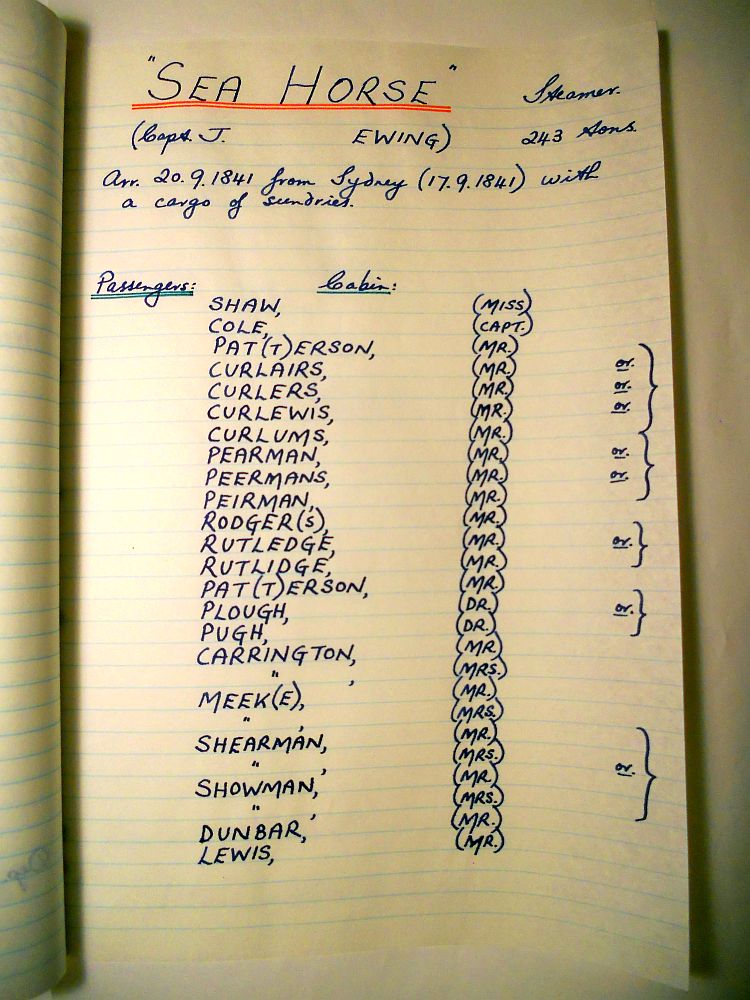 "SEA HORSE" Steamer.
(Capt. J. EWING) 243 tons.
Arr. 20.9.1841 from Sydney (17.9.1841) with
a cargo of sundries.
Passengers: Cabin:
SHAW, (MISS)
COLE, (CAPT.)
PAT(T)ERSON, (MR.)
CURLAIRS, (MR.) or.
CURLERS, (MR.) or.
CURLEWIS, (MR.) or.
CURLUMS, (MR.)
PEARMAN, (MR.) or.
PEERMANS, (MR.) or.
PEIRMAN, (MR.)
RODGER(S), (MR.)
RUTLEDGE, (MR.) or.
RUTLIDGE, (MR.)
PAT(T)ERSON, (MR.)
PLOUGH, (DR.) or.
PUGH, (DR.)
CARRINGTON, (MR)
" , (MRS.)
MEEK(E), (MR.)
" , (MRS.)
SHEARMAN, (MR.)
" , (MRS.)
SHOWMAN, (MR.) or.
" , (MRS.)
DUNBAR, (MR.)
LEWIS, (MR.)